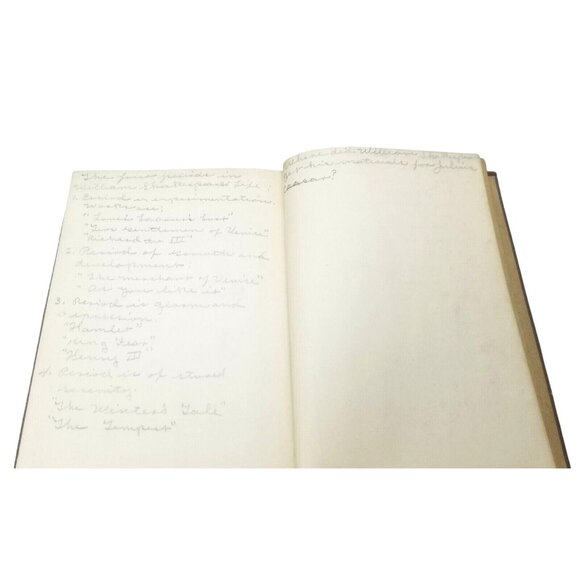 "The four periods in
William Shakespeares Life:
1. Period is experimentation.
Works are:
"Loves Labour's Lost"
"Two Gentlemen of Venice"
"Richard III"
2. Period of growth and
development:
"The merchant of Venice"
"As you like it"
3. Period is gloom and
depression:
"Hamlet"
"King Lear"
"Henry IV"
4. Period is of
serenity.
"The Winters Tale"
"The Tempest"
Where did William
get his material for Julius
Caesar?